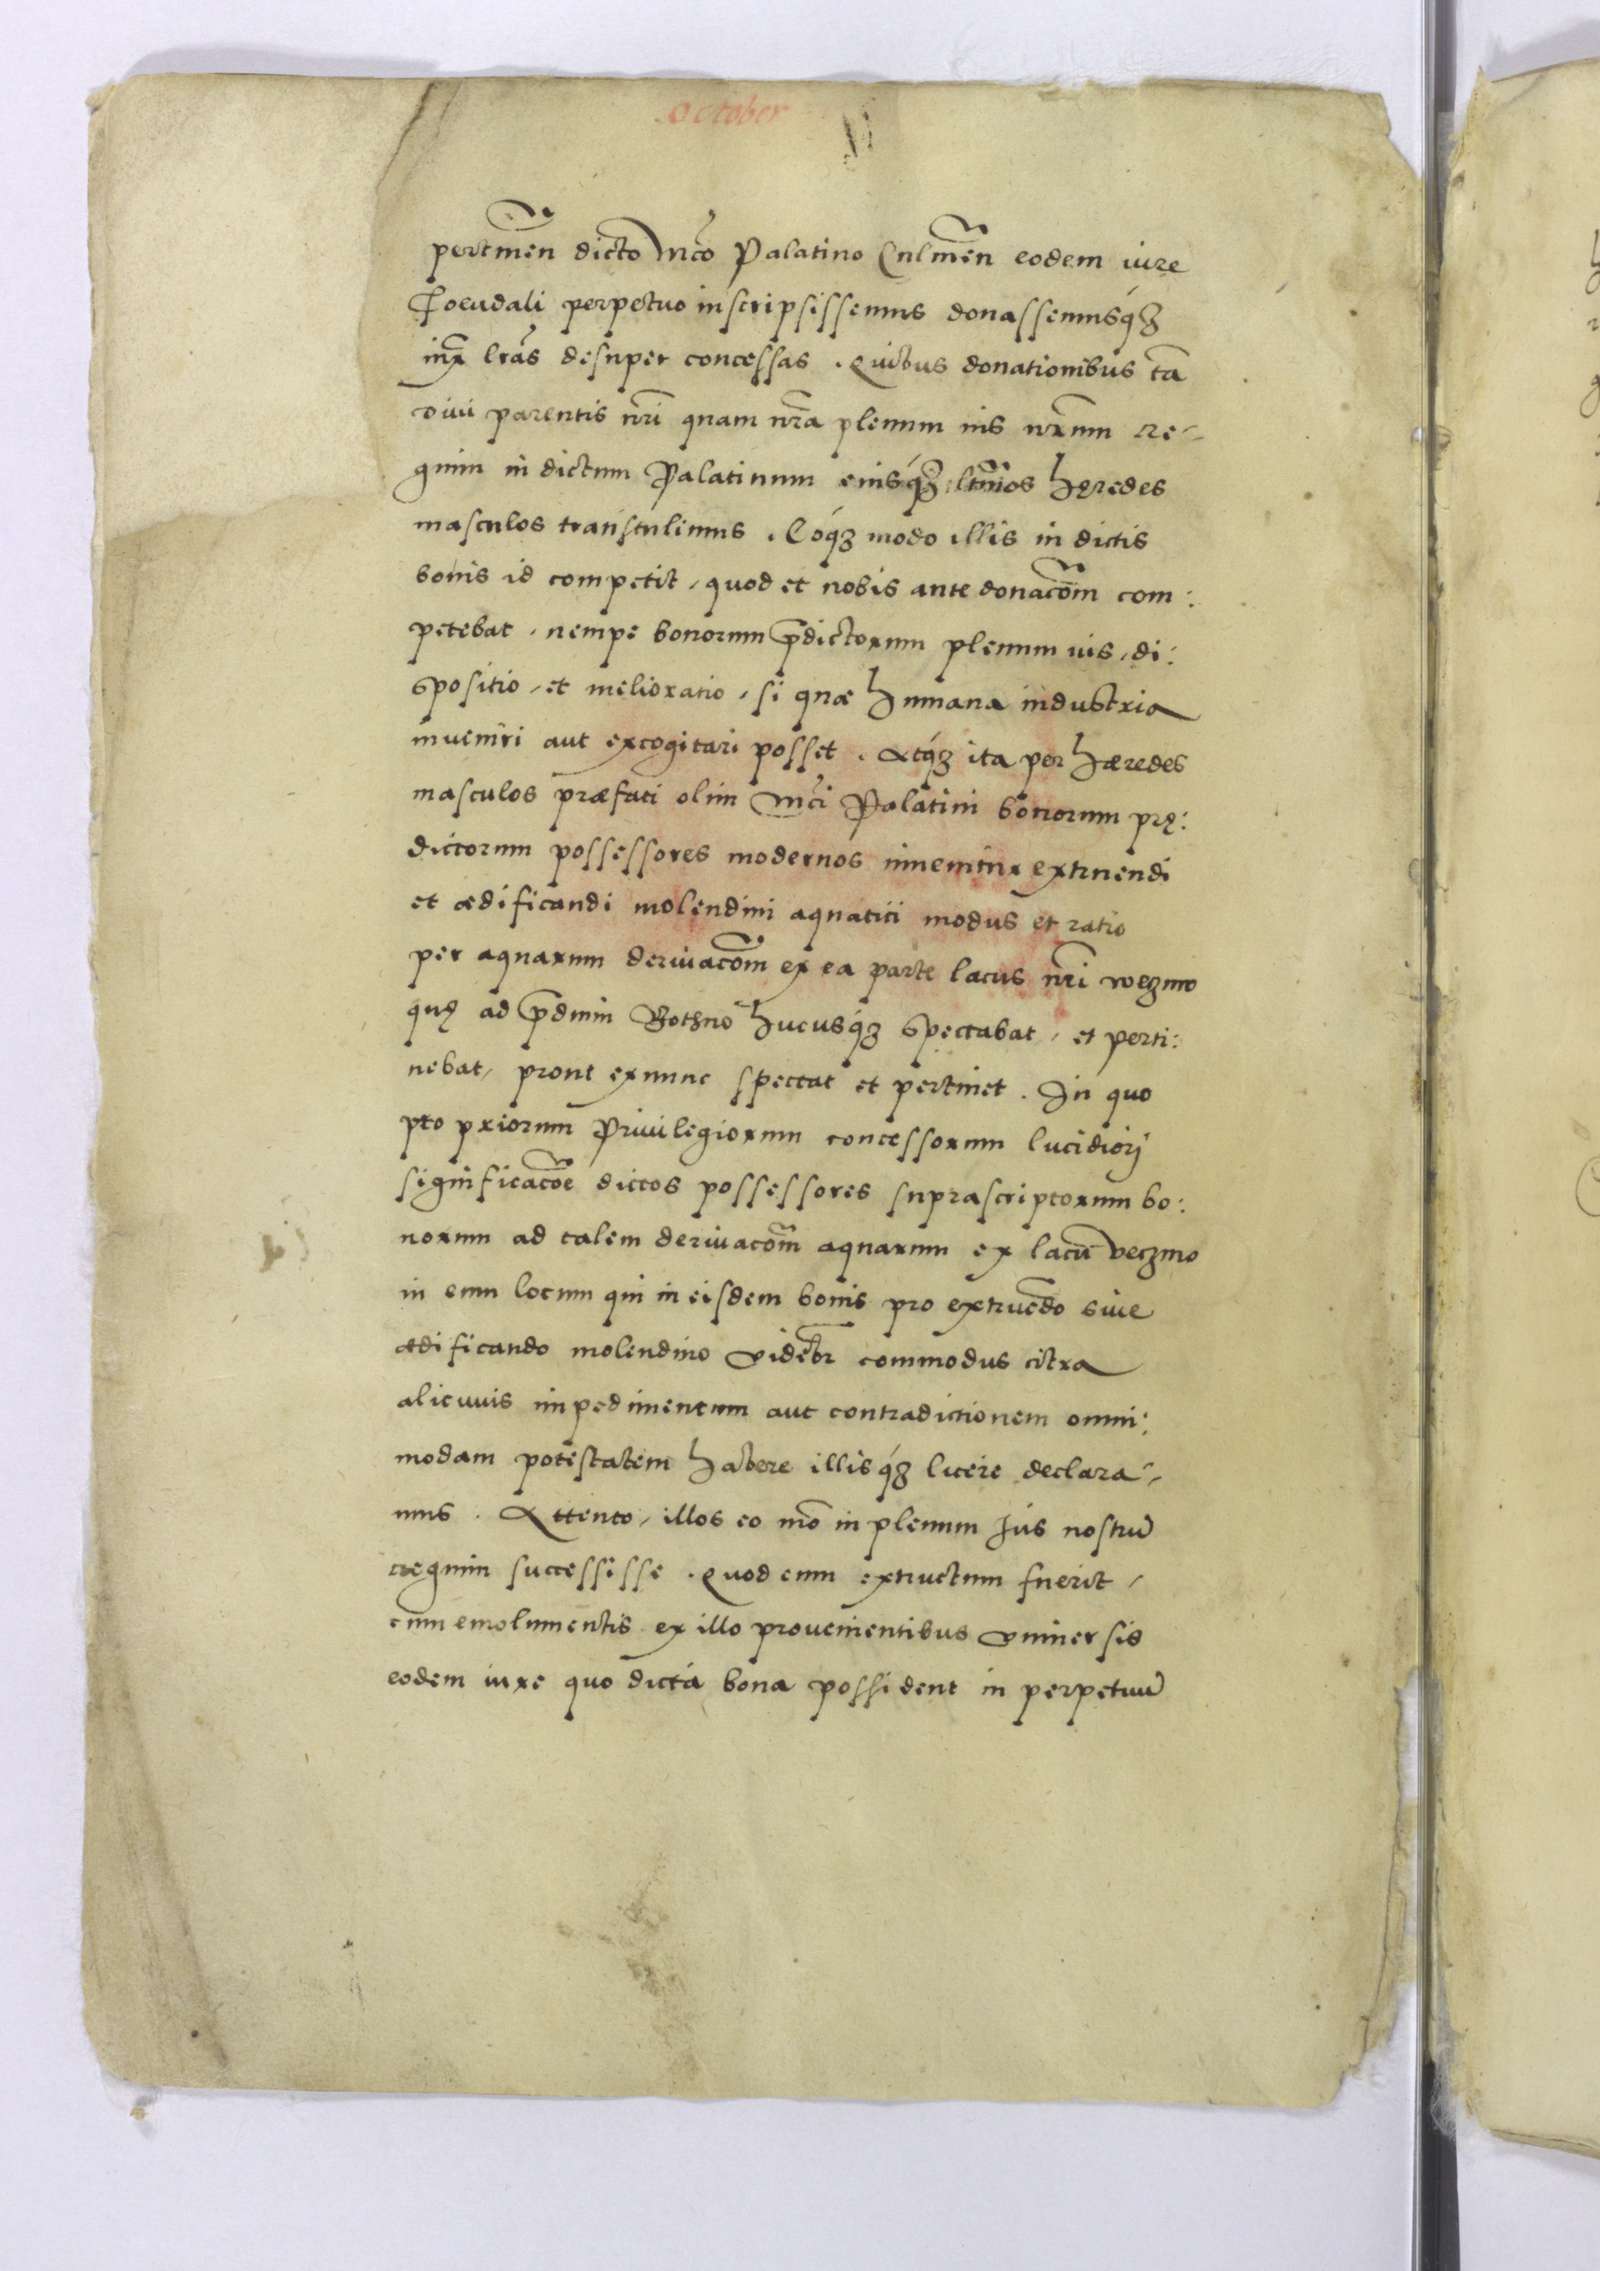 October
pertmeñ dicto Mco Palatino Culmeñ eodem iure
Foeudali perpetuo inscripsissemus donassemusq́ꝫ
iux̃ lras̃ desuper concessas. Quibus donationibus tã
Diui parentis nr̃i quam nr̃a plenum ius nr̃um Re-
gium in dictum Palatinum eiusq́ꝫ ltĩmos hęredes
masculos transtulimus. Eoq́ꝫ modo illis in dictis
bonis id competit, quod et nobis ante donacõm com:
petebat, nempe bonorum p̃dictorum plenum ius, di:
spositio, et melioratio, si quæ humana industria
inueniri aut excogitari posset. Atq́ꝫ ita per hæredes
masculos præfati olim Mci Palatini bonorum prę:
dictorum possessores modernos inuenitur extruendi
et ædificandi molendini aquatici modus et ratio
per aquarum deriuacõm ex ea parte lacus nr̃i wegzno
quę ad p̃dium Bothno hucusq́ꝫ spectabat, et perti:
nebat, prout exnunc spectat et pertinet. In quo
pto priorum Priuilegiorum concessorum lucidiorj
significacõe dictos possessores suprascriptorum bo:
norum ad talem deriuacõm aquarum ex lacu veczno
in eum locum qui in eisdem bonis pro extruẽdo siue
ædificando molendino videbr̃ commodus citra
alicuuis impedimentum aut contradictionem omni:
modam potestatem habere illisq́ꝫ licere declara-
mus. Attento, illos eo mõ in plenum Jus nostrũ
regium successisse. Quod cum extructum fuerit,
cum emolumentis ex illo prouenientibus vniuersis
eodem iure quo dicta bona possident in perpetuũ